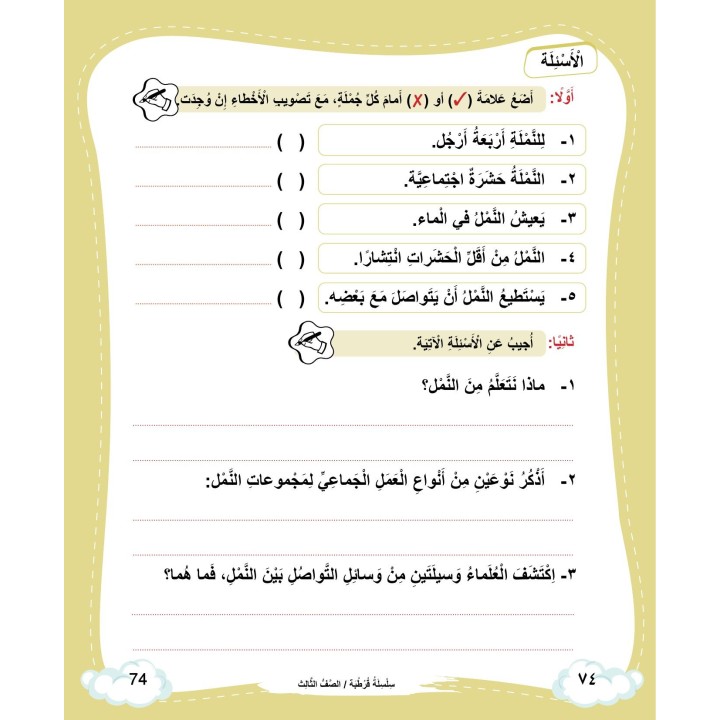 الْأَسْئِلَة
أَوَّلًا: أَضَعُ عَلامَةَ (✓) أو (✗) أَمامَ كُلِّ جُمْلَةٍ، مَعَ تَصْويبِ الْأَخْطاءِ إِنْ وُجِدَت.
١- لِلنَّمْلَةِ أَرْبَعَةُ أَرْجُل. ( ) ........................
٢- النَّمْلَةُ حَشَرَةٌ اجْتِماعِيَّة. ( ) ........................
٣- يَعيشُ النَّمْلُ في الْماء. ( ) ........................
٤- النَّمْلُ مِنْ أَقَلِّ الْحَشَراتِ انْتِشارًا. ( ) ........................
٥- يَسْتَطيعُ النَّمْلُ أَنْ يَتَواصَلَ مَعَ بَعْضِه. ( ) ........................
ثانِيًا: أُجيبُ عَنِ الْأَسْئِلَةِ الْآتِيَة.
١- ماذا نَتَعَلَّمُ مِنَ النَّمْل؟
٢- أَذْكُرُ نَوْعَيْنِ مِنْ أَنْواعِ الْعَمَلِ الْجَماعِيِّ لِمَجْموعاتِ النَّمْل:
٣- اِكْتَشَفَ الْعُلَماءُ وَسيلَتَينِ مِنْ وَسائِلِ التَّواصُلِ بَيْنَ النَّمْلِ، فَما هُما؟
٧٤ سِلْسِلَةُ قُرْطُبَة / الصَّفُّ الثّالِث 74